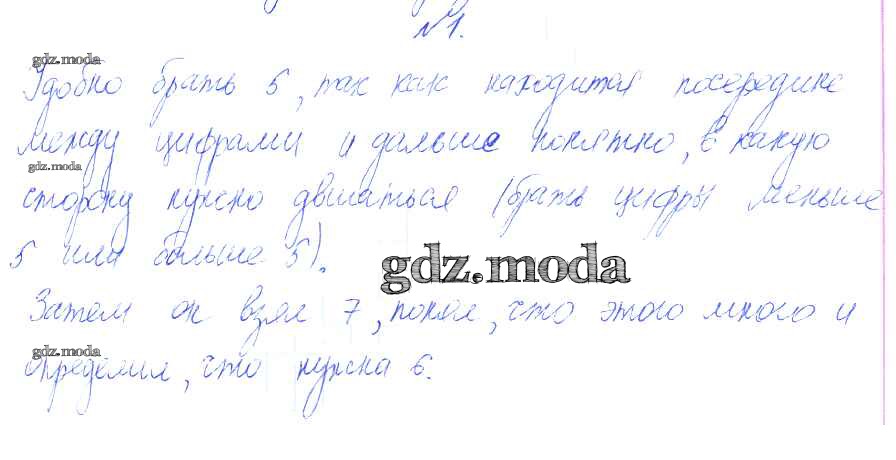 №1.
gdz.moda
Удобно брать 5, так как находится посередине
между цифрами и дальше понятно, в какую
gdz.moda
сторону нужно двигаться (брать цифры меньше
5 или больше 5).
gdz.moda
Затем он взял 7, понял, что этого много и
gdz.moda
определил, что нужна 6.